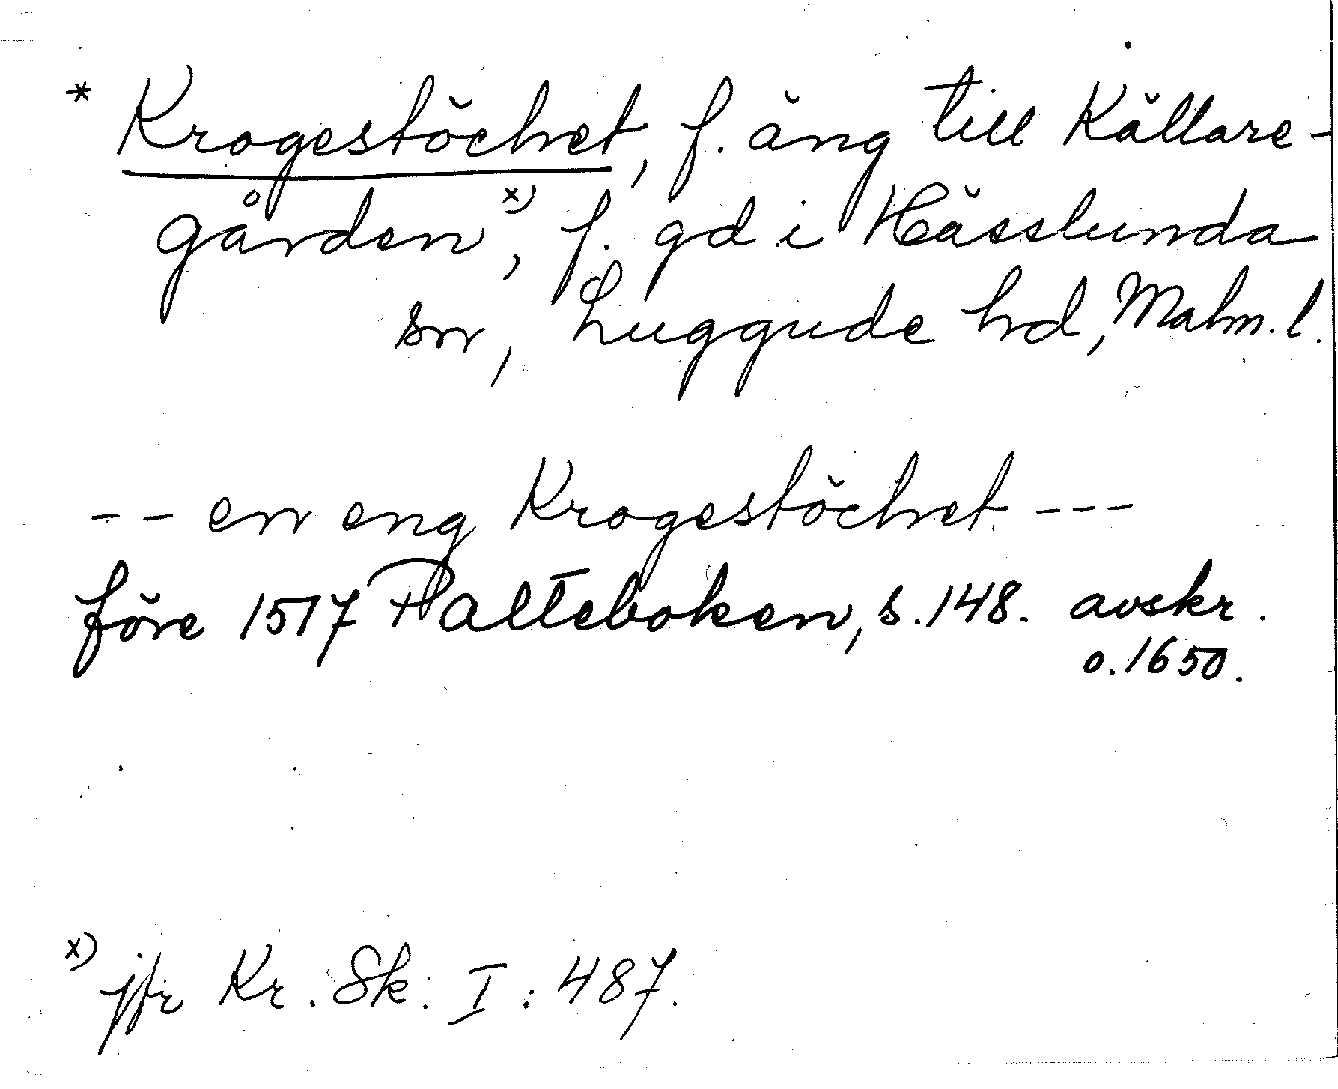 * Krogestöchet, f. äng till Källare-
gården x), f. gd i Hässlunda
sn, Luggude hd, Malm. l.
-- en eng Krogestöchet ---
före 1517 Palteboken, s. 148. avskr.
o. 1650.
x) jfr Kr. Sk. I: 487.